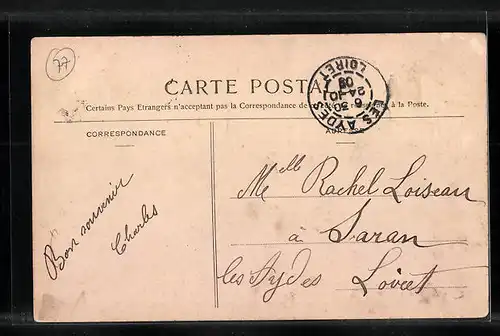 77
CARTE POSTA
Certains Pays Etrangers n'acceptant pas la Correspondance de à la Poste.
LES AYDES
6 30
24 -10
LOIRET
CORRESPONDANCE
Bon souvenir
Charles
Melle Rachel Loiseau
à Saran
les Aydes Loiret